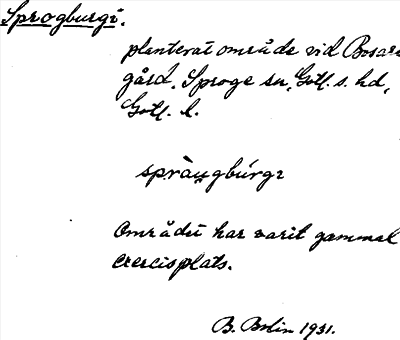 Sprogburgi.
planterat område vid Bosar
gård, Sproge sn, Gotl. s. hd,
Gotl. l.
spràu̯gbúrgı
Området har varit gammal
exercisplats.
B. Bolin 1931.